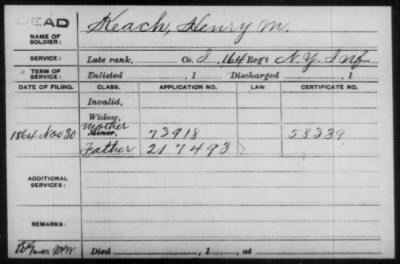 DEAD
NAME OF SOLDIER: Heach, Henry M.
SERVICE: Late rank, Co. I, 164 Reg't N.Y. Inf
TERM OF SERVICE: Enlisted , 1 Discharged , 1
DATE OF FILING. CLASS. APPLICATION NO. LAW. CERTIFICATE NO.
Invalid,
Widow,
1864 Nov 30 Minor, Mother 73918 58339
Father 217493
ADDITIONAL SERVICES:
REMARKS:
Died , 1 , at